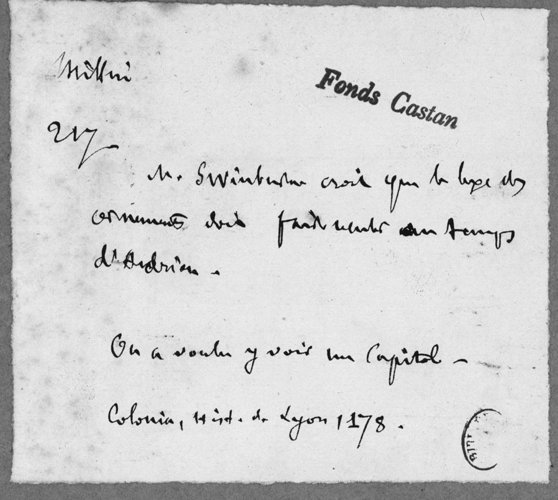 Millin
Fonds Castan
217
M. Swinburne croit que le luxe des
ornements doit faire remonter au temps
d'Adrien.
On a voulu y voir un Capitole
Colonia, Hist. de Lyon, 178.